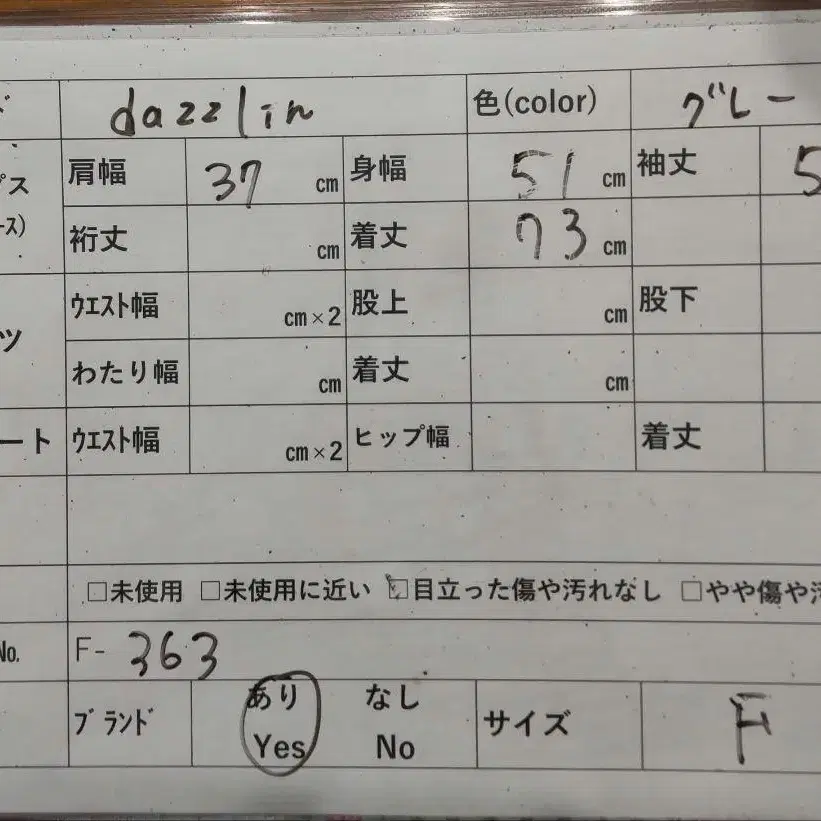 dazzlin 色(color) グレー
プス 肩幅 37 cm 身幅 51 cm 袖丈 5
ース) 裄丈 cm 着丈 73 cm
ツ ｳｴｽﾄ幅 cm×2 股上 cm 股下
わたり幅 cm 着丈 cm
ート ｳｴｽﾄ幅 cm×2 ヒップ幅 着丈
□未使用 □未使用に近い ☑目立った傷や汚れなし □やや傷や汚
No. F- 363
ﾌﾞﾗﾝﾄﾞ あり なし サイズ F
Yes No